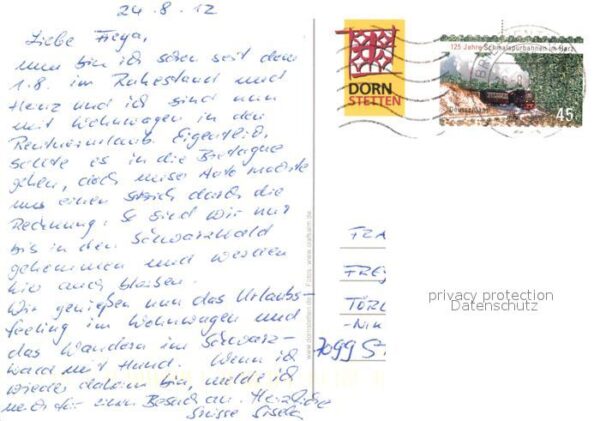 24.8.12
Liebe Freya,
nun bin ich schon seit dem
1.8. im Ruhestand und
Heinz und ich sind nun
mit Wohnwagen in den
Rentnerurlaub. Eigentlich
sollte es in die Bretagne
gehen, doch unser Auto machte
uns einen Strich durch die
Rechnung. So sind wir nur
bis in den Schwarzwald
gekommen und werden
hier auch bleiben.
Wir genießen nun das Urlaubs-
feeling im Wohnwagen und
das Wandern im Schwarz-
wald mit Hund. Wenn ich
wieder daheim bin, melde ich
mich für einen Besuch an. Herzliche
Grüsse Gisela
DORN
STETTEN
125 Jahre Schmalspurbahnen im Harz
45
FRA
FREY
TÜRL
7099 ST
privacy protection
Datenschutz